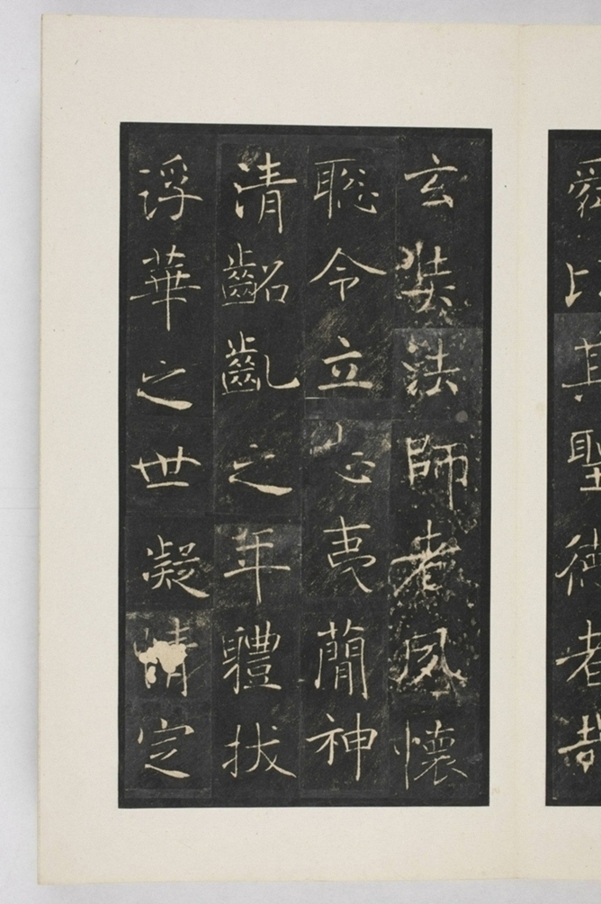 舜比其聖德者哉
玄奘法師者夙懷
聦令立志夷簡神
清齠齓之年體拔
浮華之世凝情定